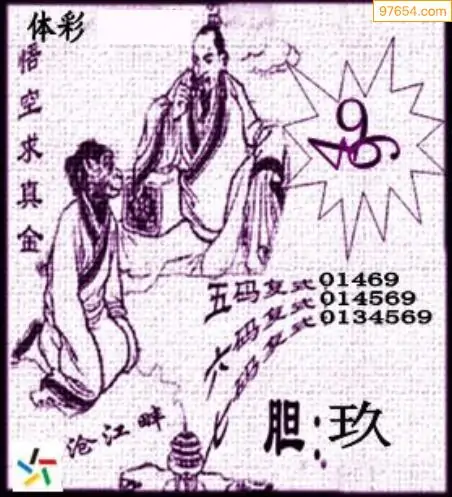 97654.com
体彩
悟空求真金
9
五码复式01469
六码复式014569
七码复式0134569
沧江畔
胆:玖